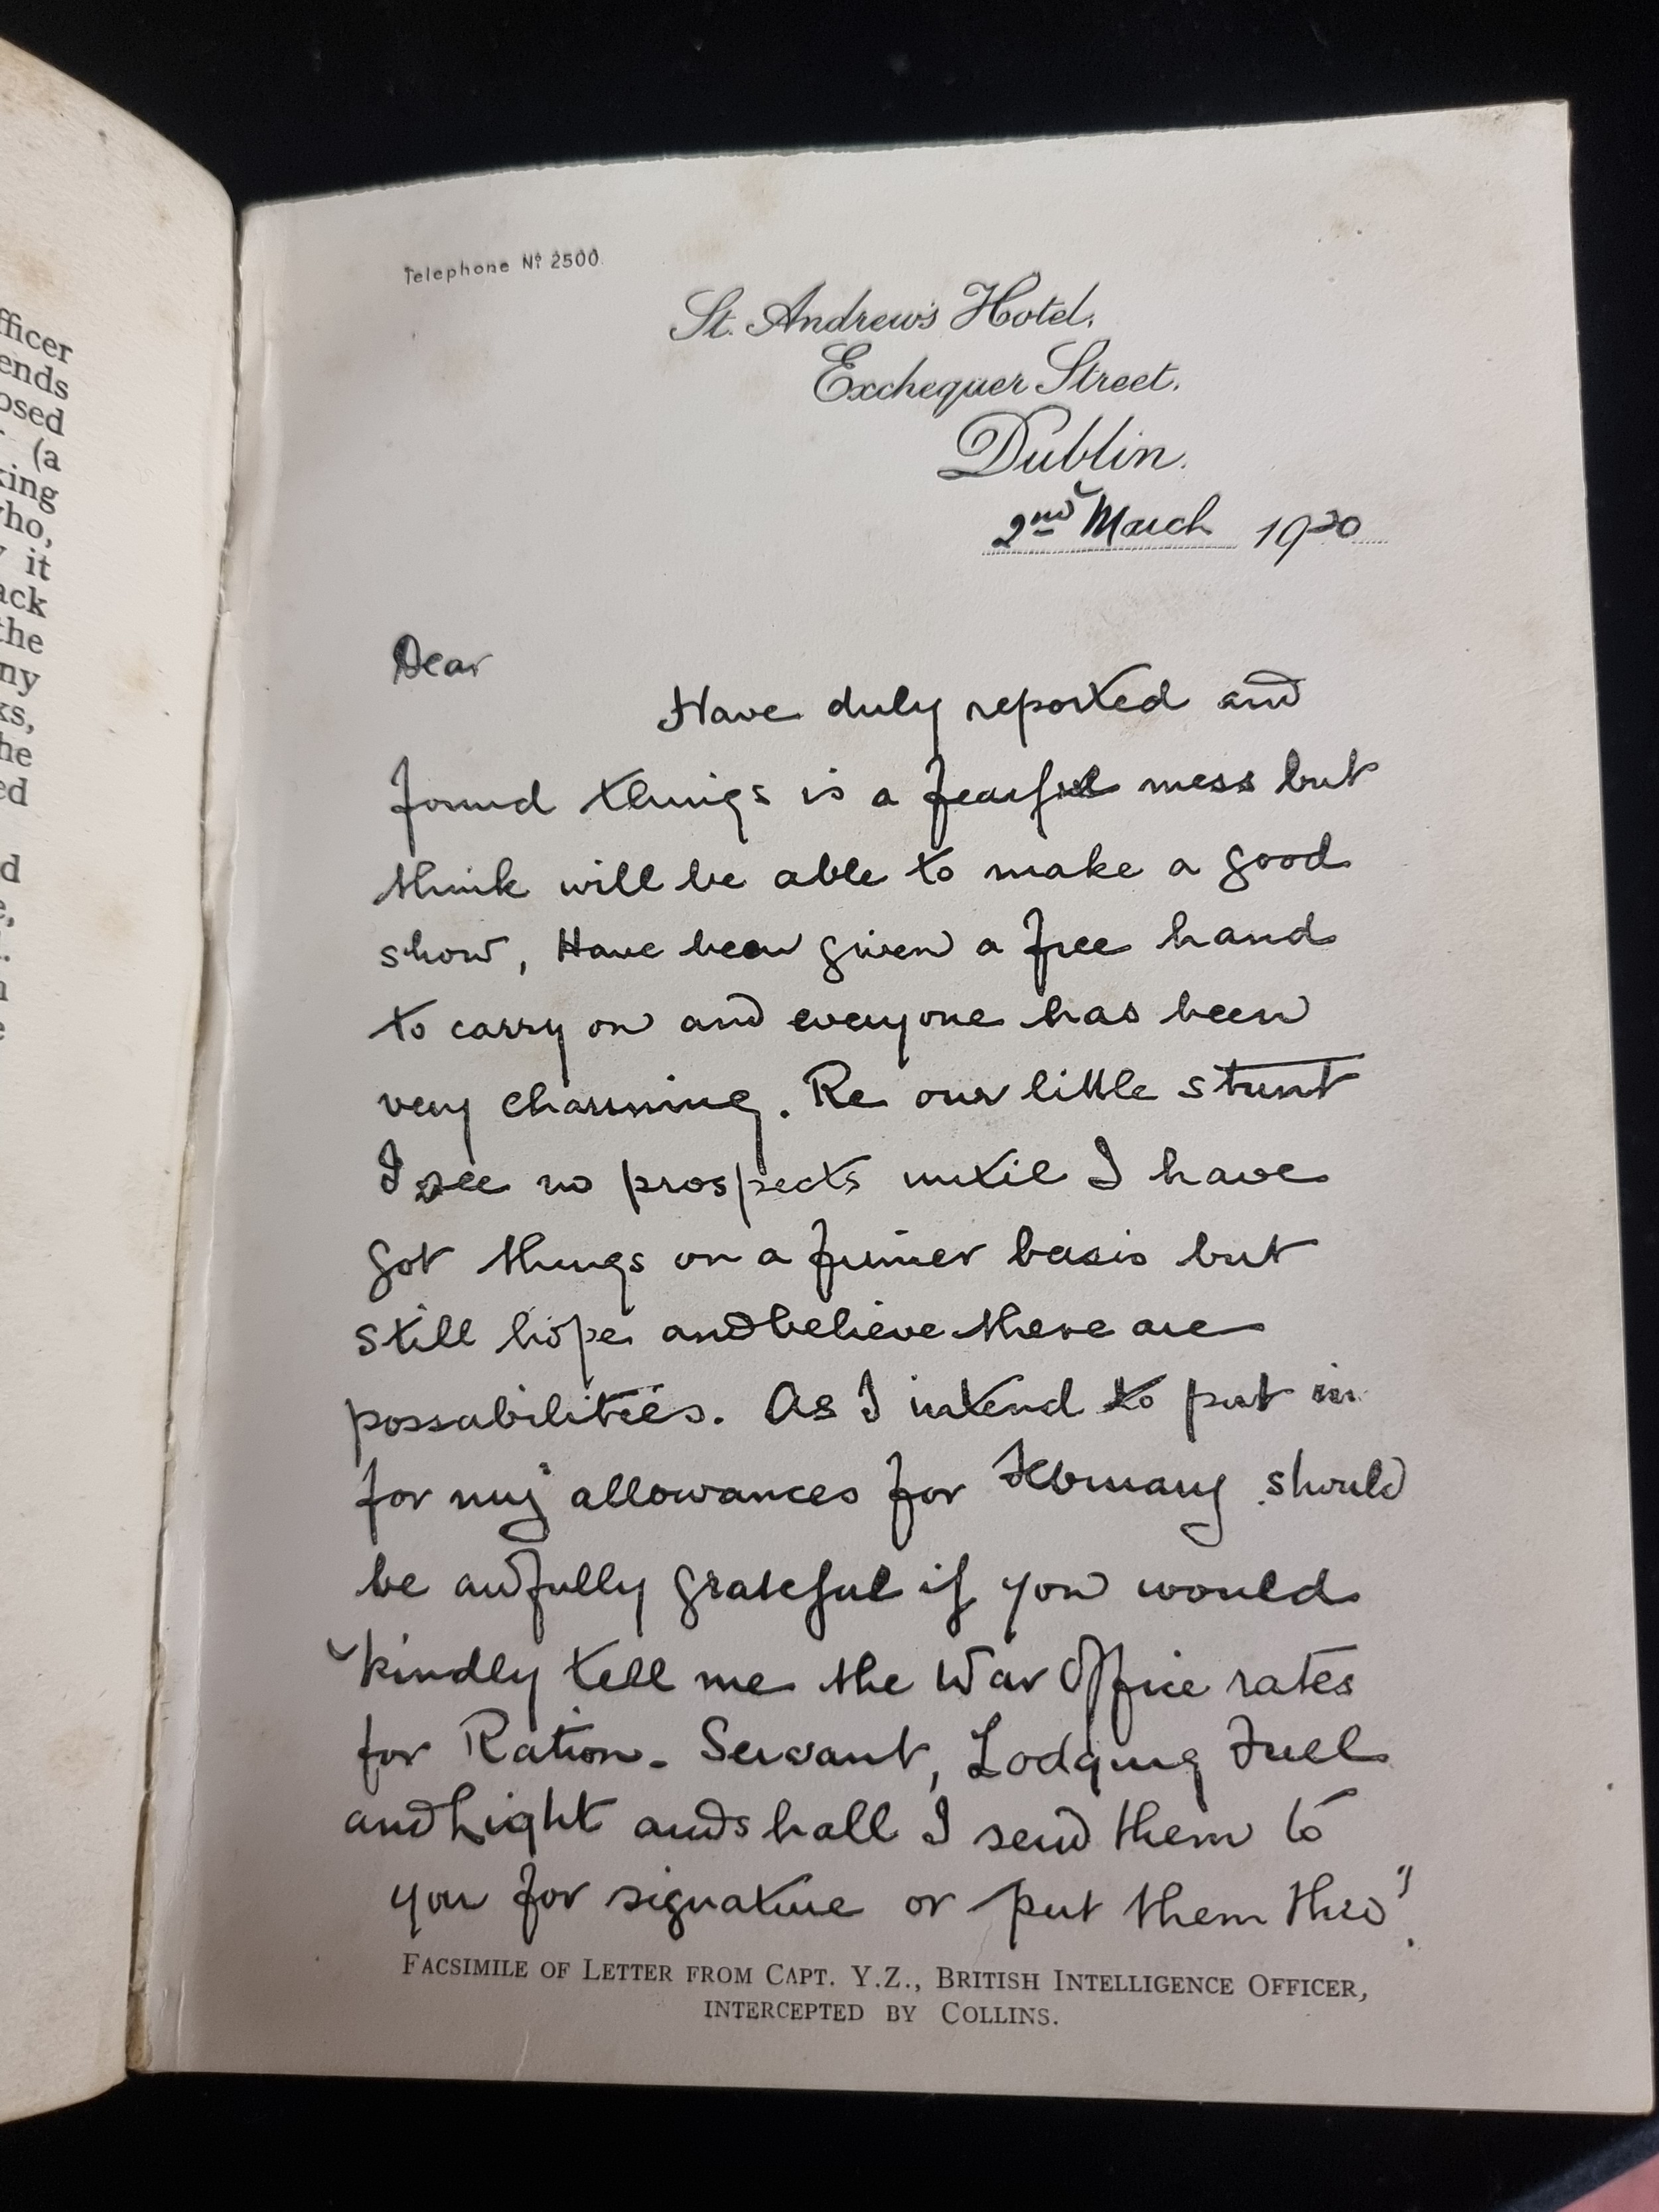 fficer
ends
osed
(a
king
who,
it
ack
the
ny
ks,
he
ed
d
e,
n
e
Telephone No 2500.
St. Andrew's Hotel,
Exchequer Street,
Dublin.
2nd March 1920
Dear
Have duly reported and
found things is a fearful mess but
think will be able to make a good
show, Have been given a free hand
to carry on and everyone has been
very charming. Re our little stunt
I see no prospects until I have
got things on a firmer basis but
still hope and believe there are
possabilities. As I intend to put in
for my allowances for February should
be awfully grateful if you would
kindly tell me the War Office rates
for Ration. Servant, Lodging Fuel
and Light and shall I send them to
you for signature or put them thro'?
FACSIMILE OF LETTER FROM CAPT. Y.Z., BRITISH INTELLIGENCE OFFICER,
INTERCEPTED BY COLLINS.